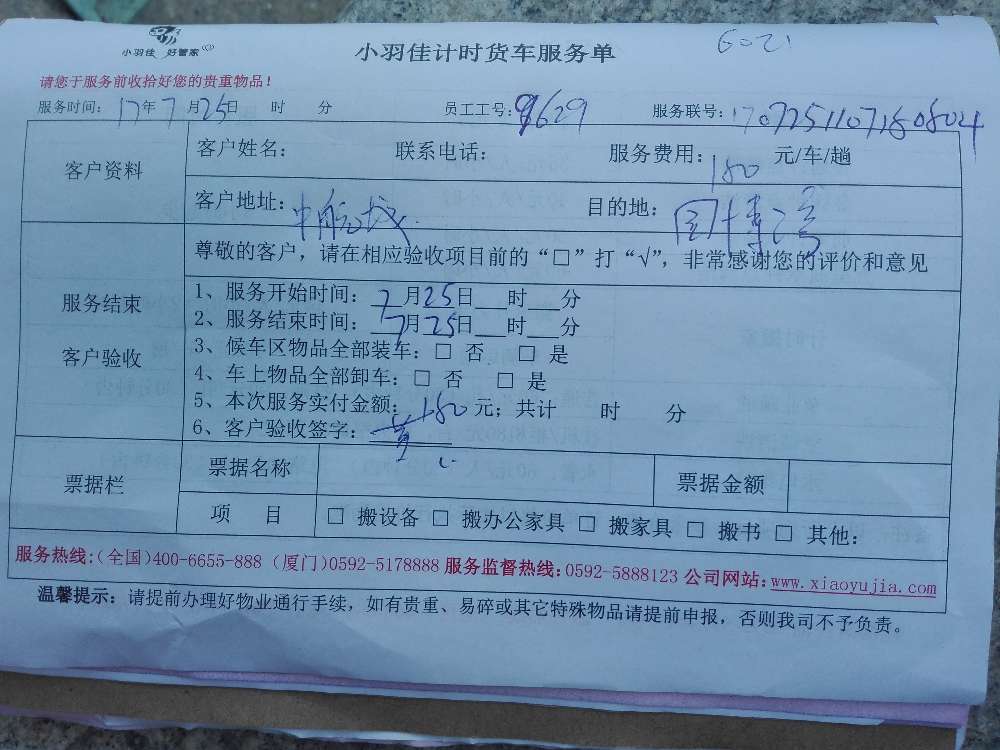 小羽佳 好管家
小羽佳计时货车服务单
6021
请您于服务前收拾好您的贵重物品！
服务时间：17年7月25日 时 分 员工工号：9629 服务联号：170725110718080804
客户资料
客户姓名： 联系电话： 服务费用：180 元/车/趟
客户地址：中航城 目的地：国博湾
尊敬的客户，请在相应验收项目前的“□”打“√”，非常感谢您的评价和意见
服务结束
客户验收
1、服务开始时间：7月25日 时 分
2、服务结束时间：7月25日 时 分
3、候车区物品全部装车：□ 否 □ 是
4、车上物品全部卸车：□ 否 □ 是
5、本次服务实付金额：180元；共计 时 分
6、客户验收签字：黄
票据栏
票据名称 票据金额
项 目 □ 搬设备 □ 搬办公家具 □ 搬家具 □ 搬书 □ 其他：
服务热线：（全国）400-6655-888（厦门）0592-5178888 服务监督热线：0592-5888123 公司网站：www.xiaoyujia.com
温馨提示：请提前办理好物业通行手续，如有贵重、易碎或其它特殊物品请提前申报，否则我司不予负责。